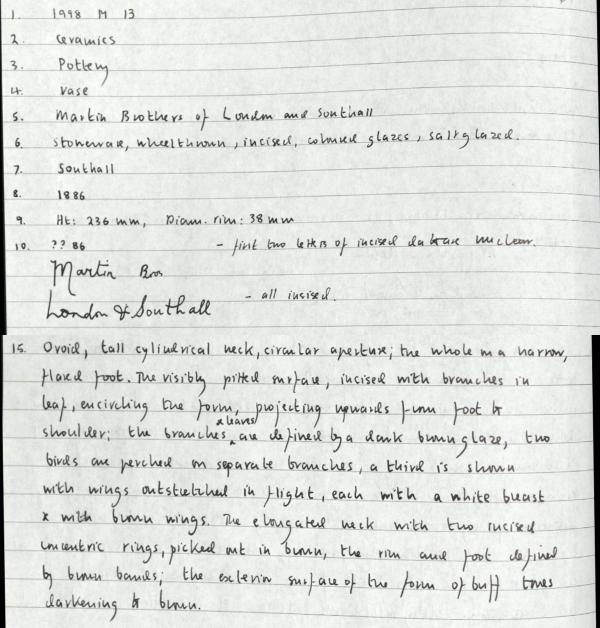 1. 1998 M 13
2. Ceramics
3. Pottery
4. Vase
5. Martin Brothers of London and Southall
6. Stoneware, wheelthrown, incised, coloured glazes, saltglazed.
7. Southall
8. 1886
9. Ht: 236 mm, Diam. rim: 38 mm
10. ?? 86 - first two letters of incised date are unclear.
Martin Bros
London & Southall - all incised.
15. Ovoid, tall cylindrical neck, circular aperture; the whole on a narrow,
flared foot. The visibly pitted surface, incised with branches in
leaf, encircling the form, projecting upwards from foot to
shoulder; the branches & leaves are defined by a dark brown glaze, two
birds are perched on separate branches, a third is shown
with wings outstretched in flight, each with a white breast
& with brown wings. The elongated neck with two incised
concentric rings, picked out in brown, the rim and foot defined
by brown bands; the exterior surface of the form of buff tones
darkening to brown.